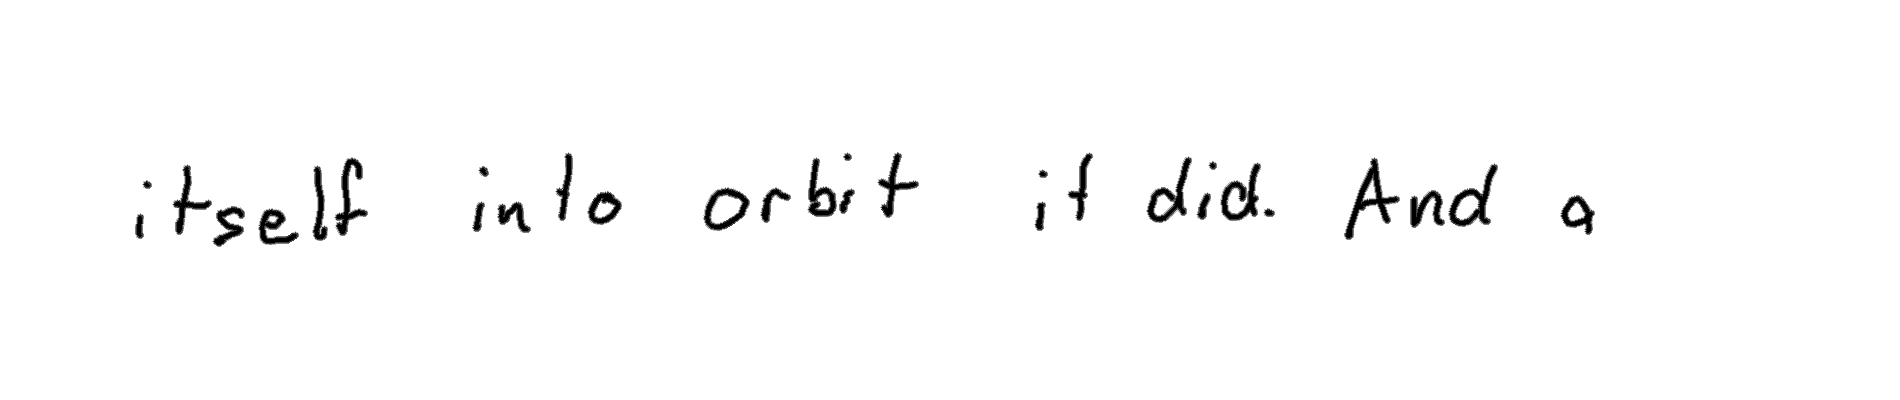 itself into orbit it did. And a